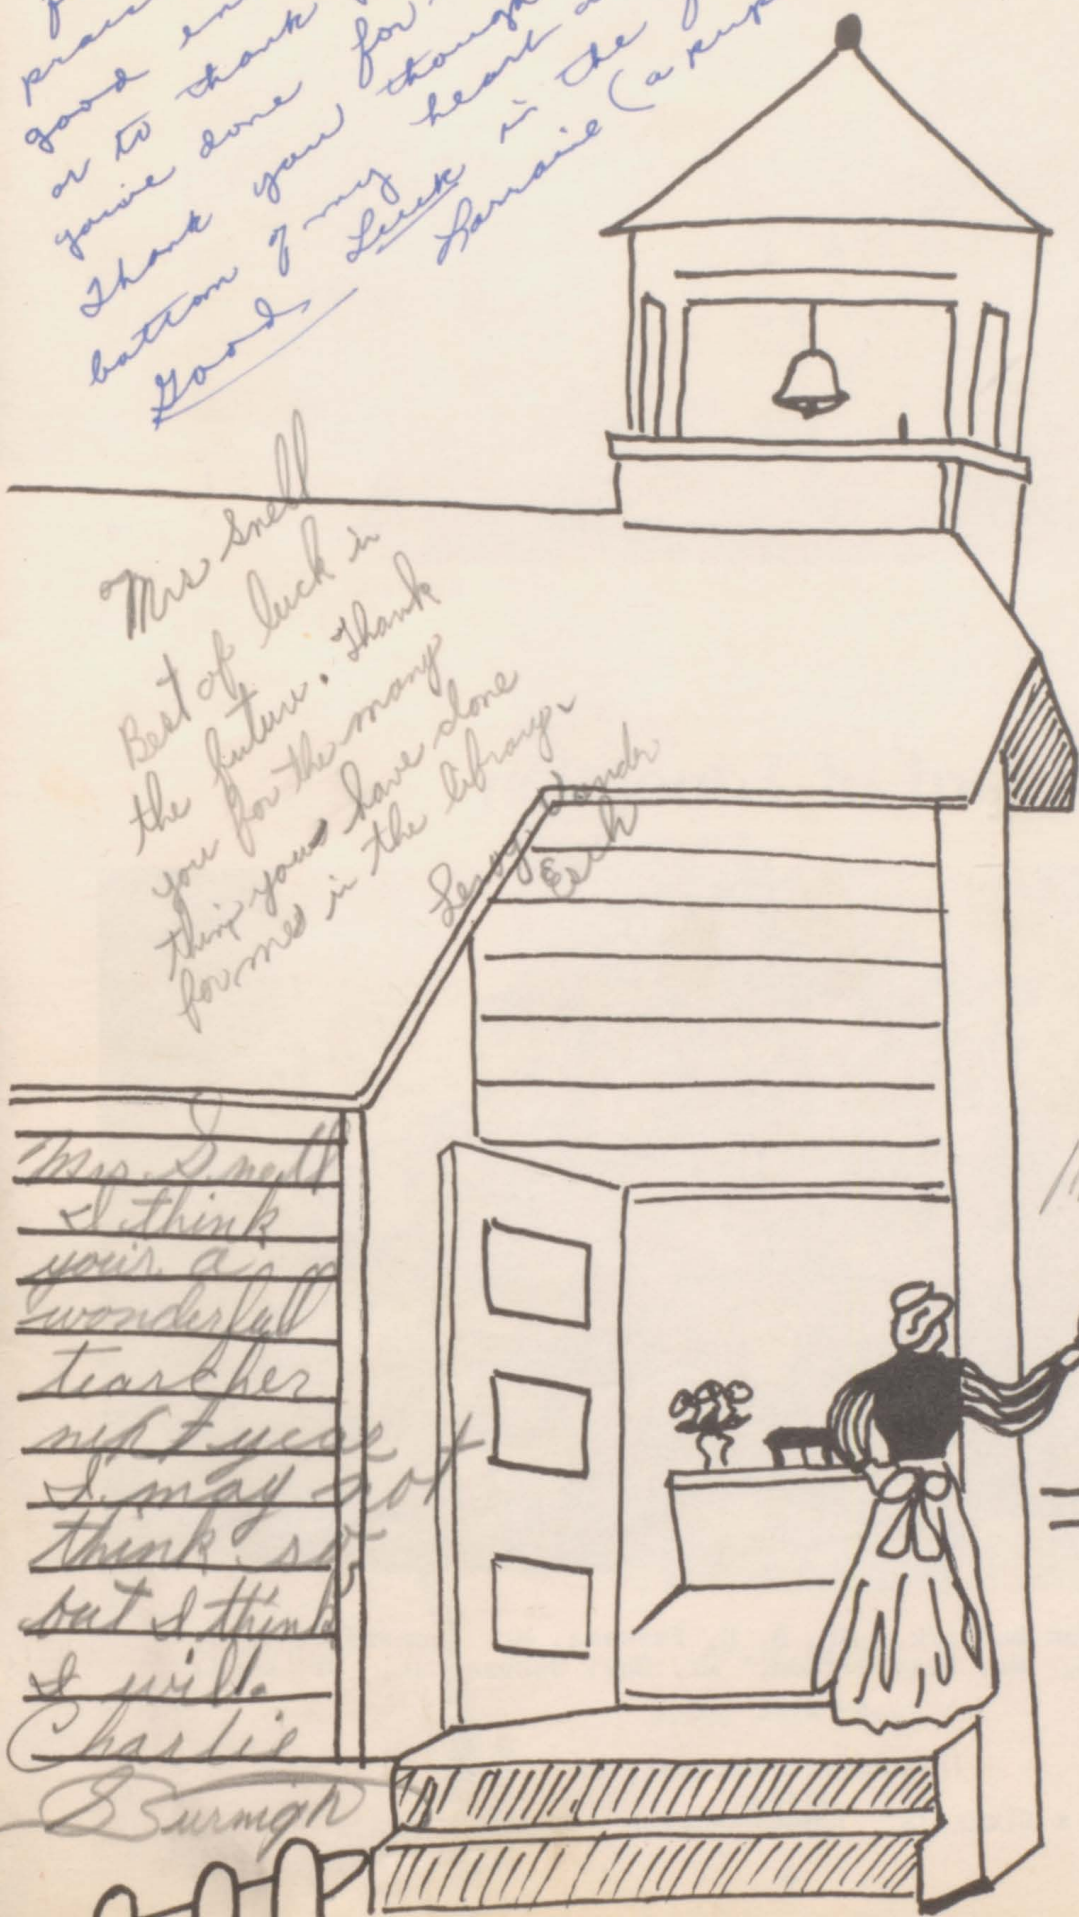 good en
or to thank
you've done for
Thank you though
bottom of my heart
Good Luck in the
Lorraine (a pup
Mrs Snell
Best of luck in
the future. Thank
you for the many
thing yous have done
for me in the library.
Esch
Mrs. Snell
I think
your a
wonderfull
tearcher
next year
I may not
think so
but I think
I will.
Charlie